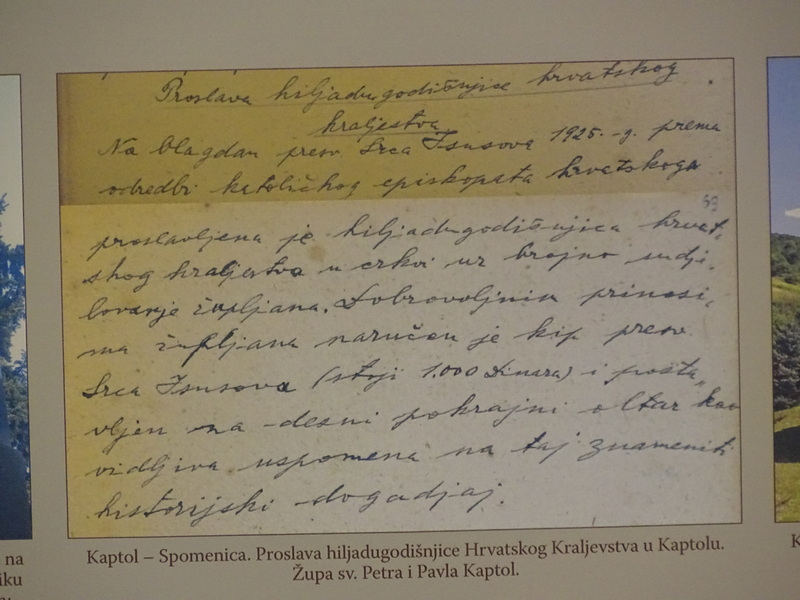 Proslava hiljadugodišnjice hrvatskog
kraljestva
Na blagdan presv. Srca Isusova 1925. g. prema
odredbi katoličkog episkopata hrvatskoga
59
proslavljena je hiljadugodišnjica hrvat-
skog kraljestva u crkvi uz brojno sudje-
lovanje župljana. Dobrovoljnim prinosi-
ma župljana naručen je kip presv.
Srca Isusova (stoji 1.000 Dinara) i posta-
vljen na desni pokrajni oltar kao
vidljiva uspomena na taj znameniti
historijski dogadjaj.
Kaptol – Spomenica. Proslava hiljadugodišnjice Hrvatskog Kraljevstva u Kaptolu.
Župa sv. Petra i Pavla Kaptol.
na
iku
K